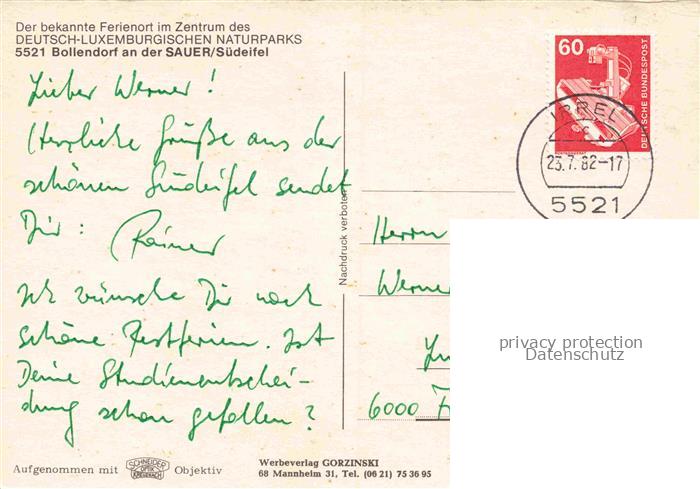 Der bekannte Ferienort im Zentrum des
DEUTSCH-LUXEMBURGISCHEN NATURPARKS
5521 Bollendorf an der SAUER/Südeifel
Lieber Werner!
Herzliche Grüße aus der
schönen Südeifel sendet
Dir: Rainer
Ich wünsche Dir noch
schöne Restferien. Ist
Deine Studienentschei-
dung schon gefallen?
Aufgenommen mit SCHNEIDER OPTIK KREUZNACH Objektiv
Werbeverlag GORZINSKI
68 Mannheim 31, Tel. (06 21) 75 36 95
Nachdruck verboten
60
DEUTSCHE BUNDESPOST
IRREL
23.7.82-17
5521
Herrn
Werner
6000 F
privacy protection
Datenschutz